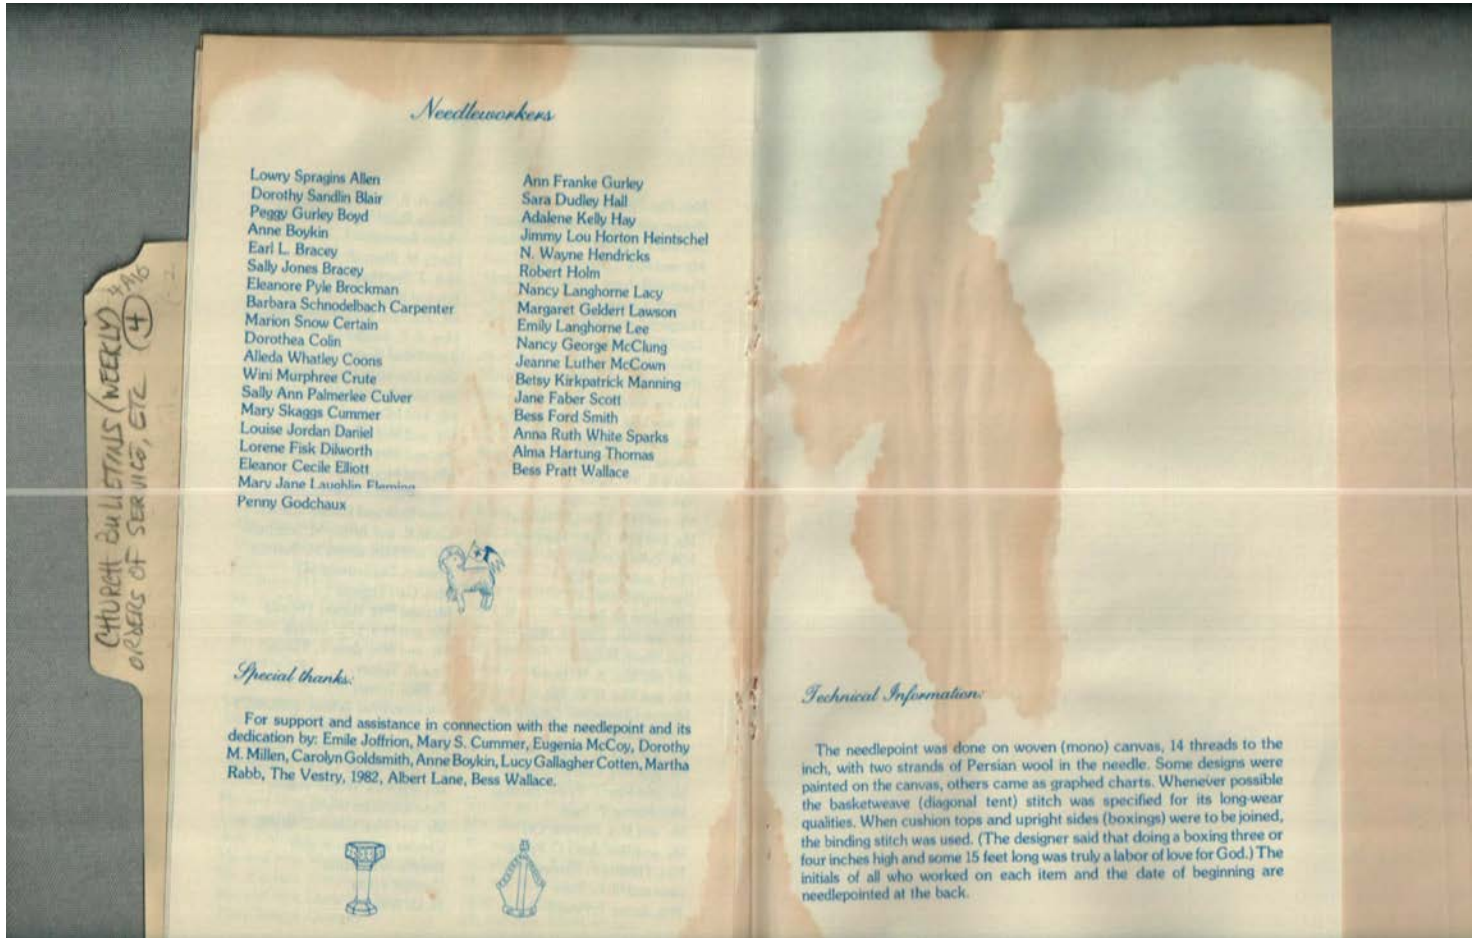 Needleworkers
Lowry Spragins Allen
Dorothy Sandlin Blair
Peggy Gurley Boyd
Anne Boykin
Earl L. Bracey
Sally Jones Bracey
Eleanore Pyle Brockman
Barbara Schnodelbach Carpenter
Marion Snow Certain
Dorothea Colin
Alleda Whatley Coons
Wini Murphree Crute
Sally Ann Palmerlee Culver
Mary Skaggs Cummer
Louise Jordan Daniel
Lorene Fisk Dilworth
Eleanor Cecile Elliott
Mary Jane Laughlin Fleming
Penny Godchaux
Ann Franke Gurley
Sara Dudley Hall
Adalene Kelly Hay
Jimmy Lou Horton Heintschel
N. Wayne Hendricks
Robert Holm
Nancy Langhorne Lacy
Margaret Geldert Lawson
Emily Langhorne Lee
Nancy George McClung
Jeanne Luther McCown
Betsy Kirkpatrick Manning
Jane Faber Scott
Bess Ford Smith
Anna Ruth White Sparks
Alma Hartung Thomas
Bess Pratt Wallace
Special thanks:
For support and assistance in connection with the needlepoint and its
dedication by: Emile Joffrion, Mary S. Cummer, Eugenia McCoy, Dorothy
M. Millen, Carolyn Goldsmith, Anne Boykin, Lucy Gallagher Cotten, Martha
Rabb, The Vestry, 1982, Albert Lane, Bess Wallace.
Technical Information:
The needlepoint was done on woven (mono) canvas, 14 threads to the
inch, with two strands of Persian wool in the needle. Some designs were
painted on the canvas, others came as graphed charts. Whenever possible
the basketweave (diagonal tent) stitch was specified for its long-wear
qualities. When cushion tops and upright sides (boxings) were to be joined,
the binding stitch was used. (The designer said that doing a boxing three or
four inches high and some 15 feet long was truly a labor of love for God.) The
initials of all who worked on each item and the date of beginning are
needlepointed at the back.
CHURCH BULLETINS (WEEKLY)
ORDERS OF SERVICE, ETC. 4